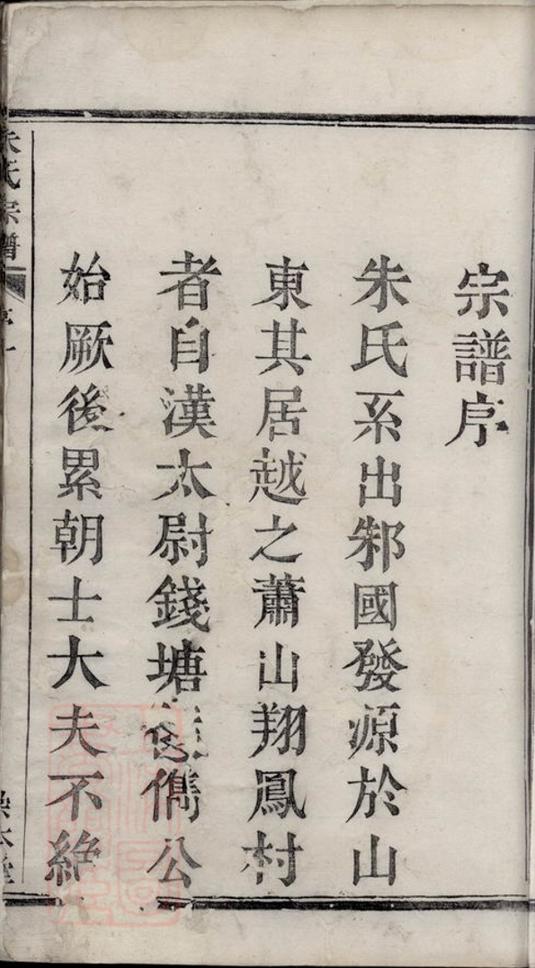 宗譜序
朱氏系出邾國發源於山
東其居越之蕭山翔鳳村
者自漢太尉錢塘侯儁公
始厥後累朝士大夫不絶
朱氏宗譜
序一